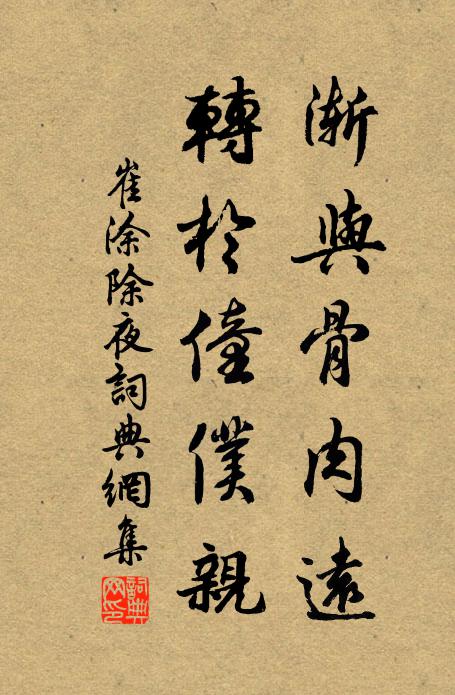 漸與骨肉遠
轉於僮僕親
崔涂除夜詞典網集
詞典网印